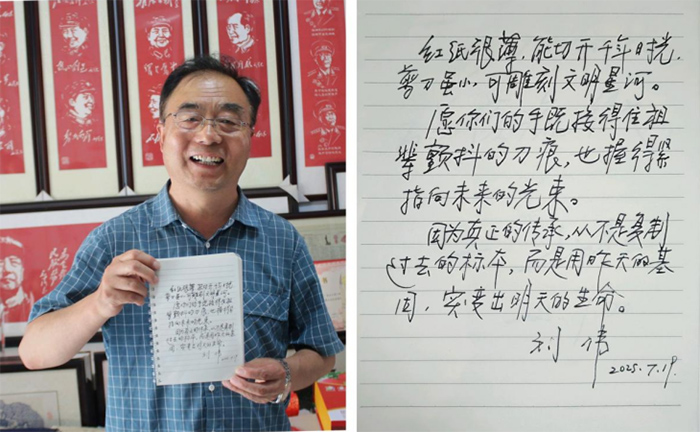 红纸很薄，能切开千年时光，
剪刀虽小，可雕刻文明星河。
愿你们的手既接得住祖
辈颤抖的刀痕，也握得紧
指向未来的光束。
因为真正的传承，从不是复制
过去的标本，而是用昨天的基
因，突变出明天的生命。
刘伟
2025.7.19.